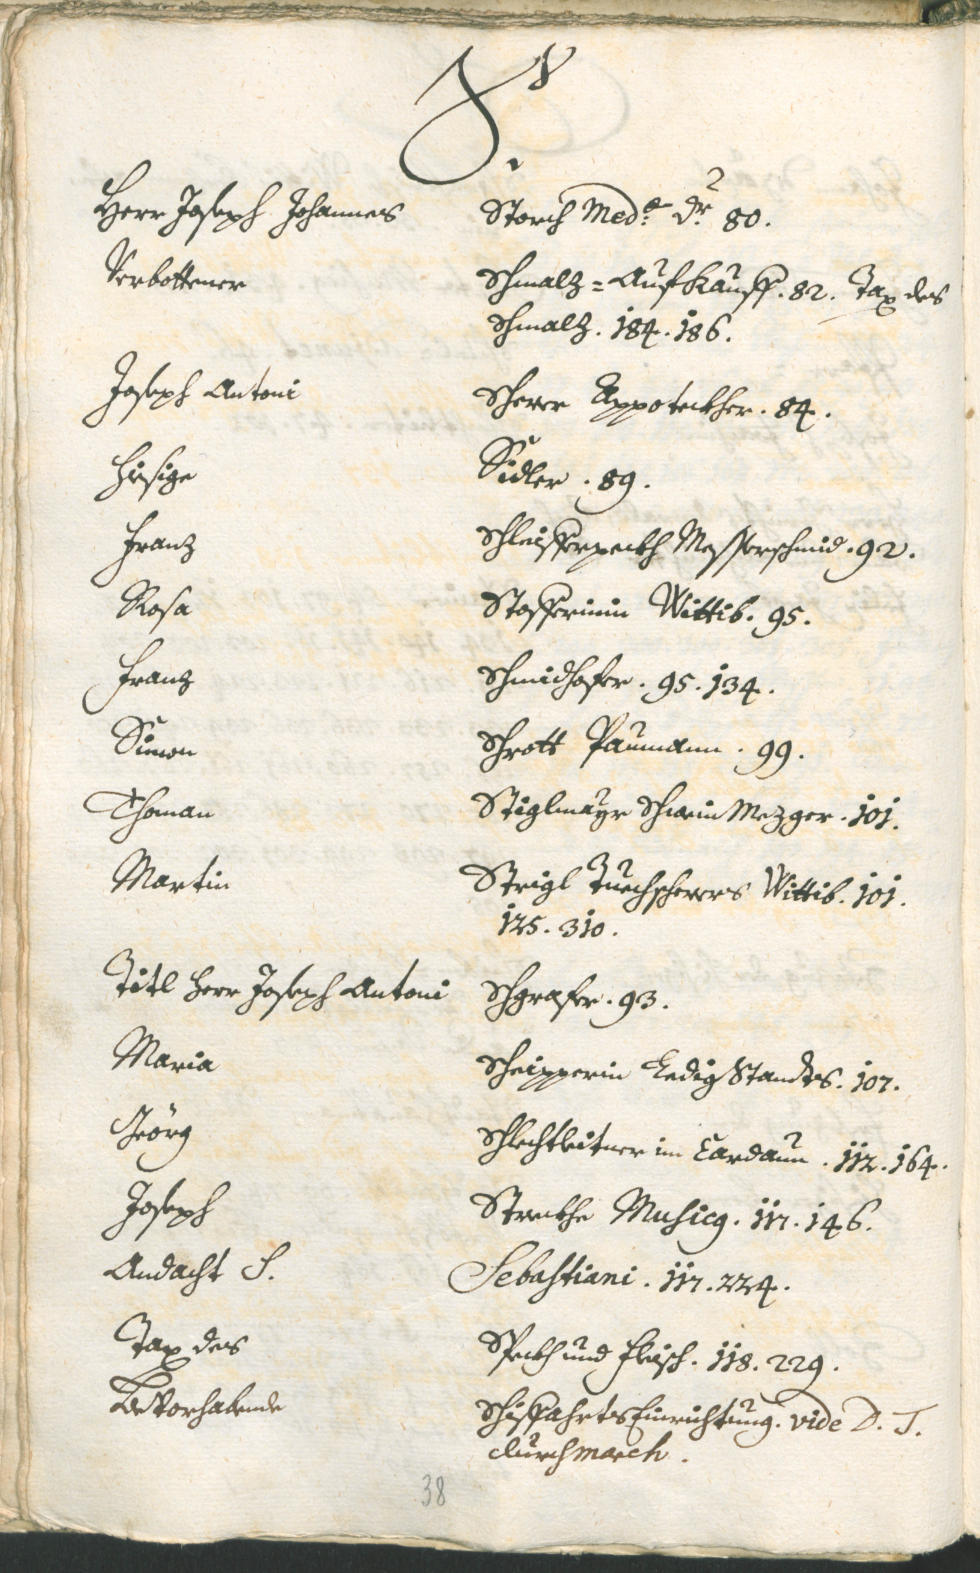 S.
Herr Joseph Johannes Storch Med: Dr. 80.
Verbottener Schmaltz=Aufkauff. 82. Tax des
Schmaltz. 184. 186.
Joseph Antoni Scherer Appoteckher. 84.
Hiesige Sidler. 89.
Franz Messerschmid. 92.
Rosa Wittib. 95.
Franz Schmidhofer. 95. 134.
Simon Schrott Paumann. 99.
Thoman Stiglmayr Schwein Mezger. 101.
Martin Strigl Tuechscherers Wittib. 101.
125. 310.
Titl Herr Joseph Antoni Schgrafer. 93.
Maria Ledig Standts. 107.
Geörg Schlechtleitner im Cardaun. 112. 164.
Joseph Musicg. 117. 146.
Andacht S. Sebastiani. 117. 224.
Tax des Speckh und Fleisch. 118. 229.
Bevorhabende Schiffahrts Einrichtung. vide D. T.
durchmarch.
38